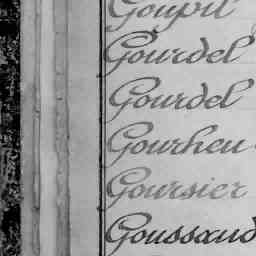 Goupil
Gourdel
Gourdel
Gourheu
Goursier
Goussaud